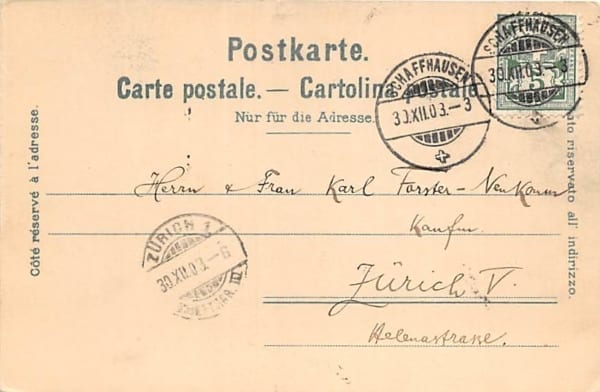 Postkarte.
Carte postale. — Cartolina postale.
Nur für die Adresse.
SCHAFFHAUSEN
30.XII.03.—3
SCHAFFHAUSEN
30.XII.03.—3
5
Côté réservé à l'adresse.
riservato all' indirizzo.
Herrn & Frau Karl Forster-Neukomm
Kaufm.
Zürich V.
Helenastrasse.
ZÜRICH 1
30.XII.03.—6
III